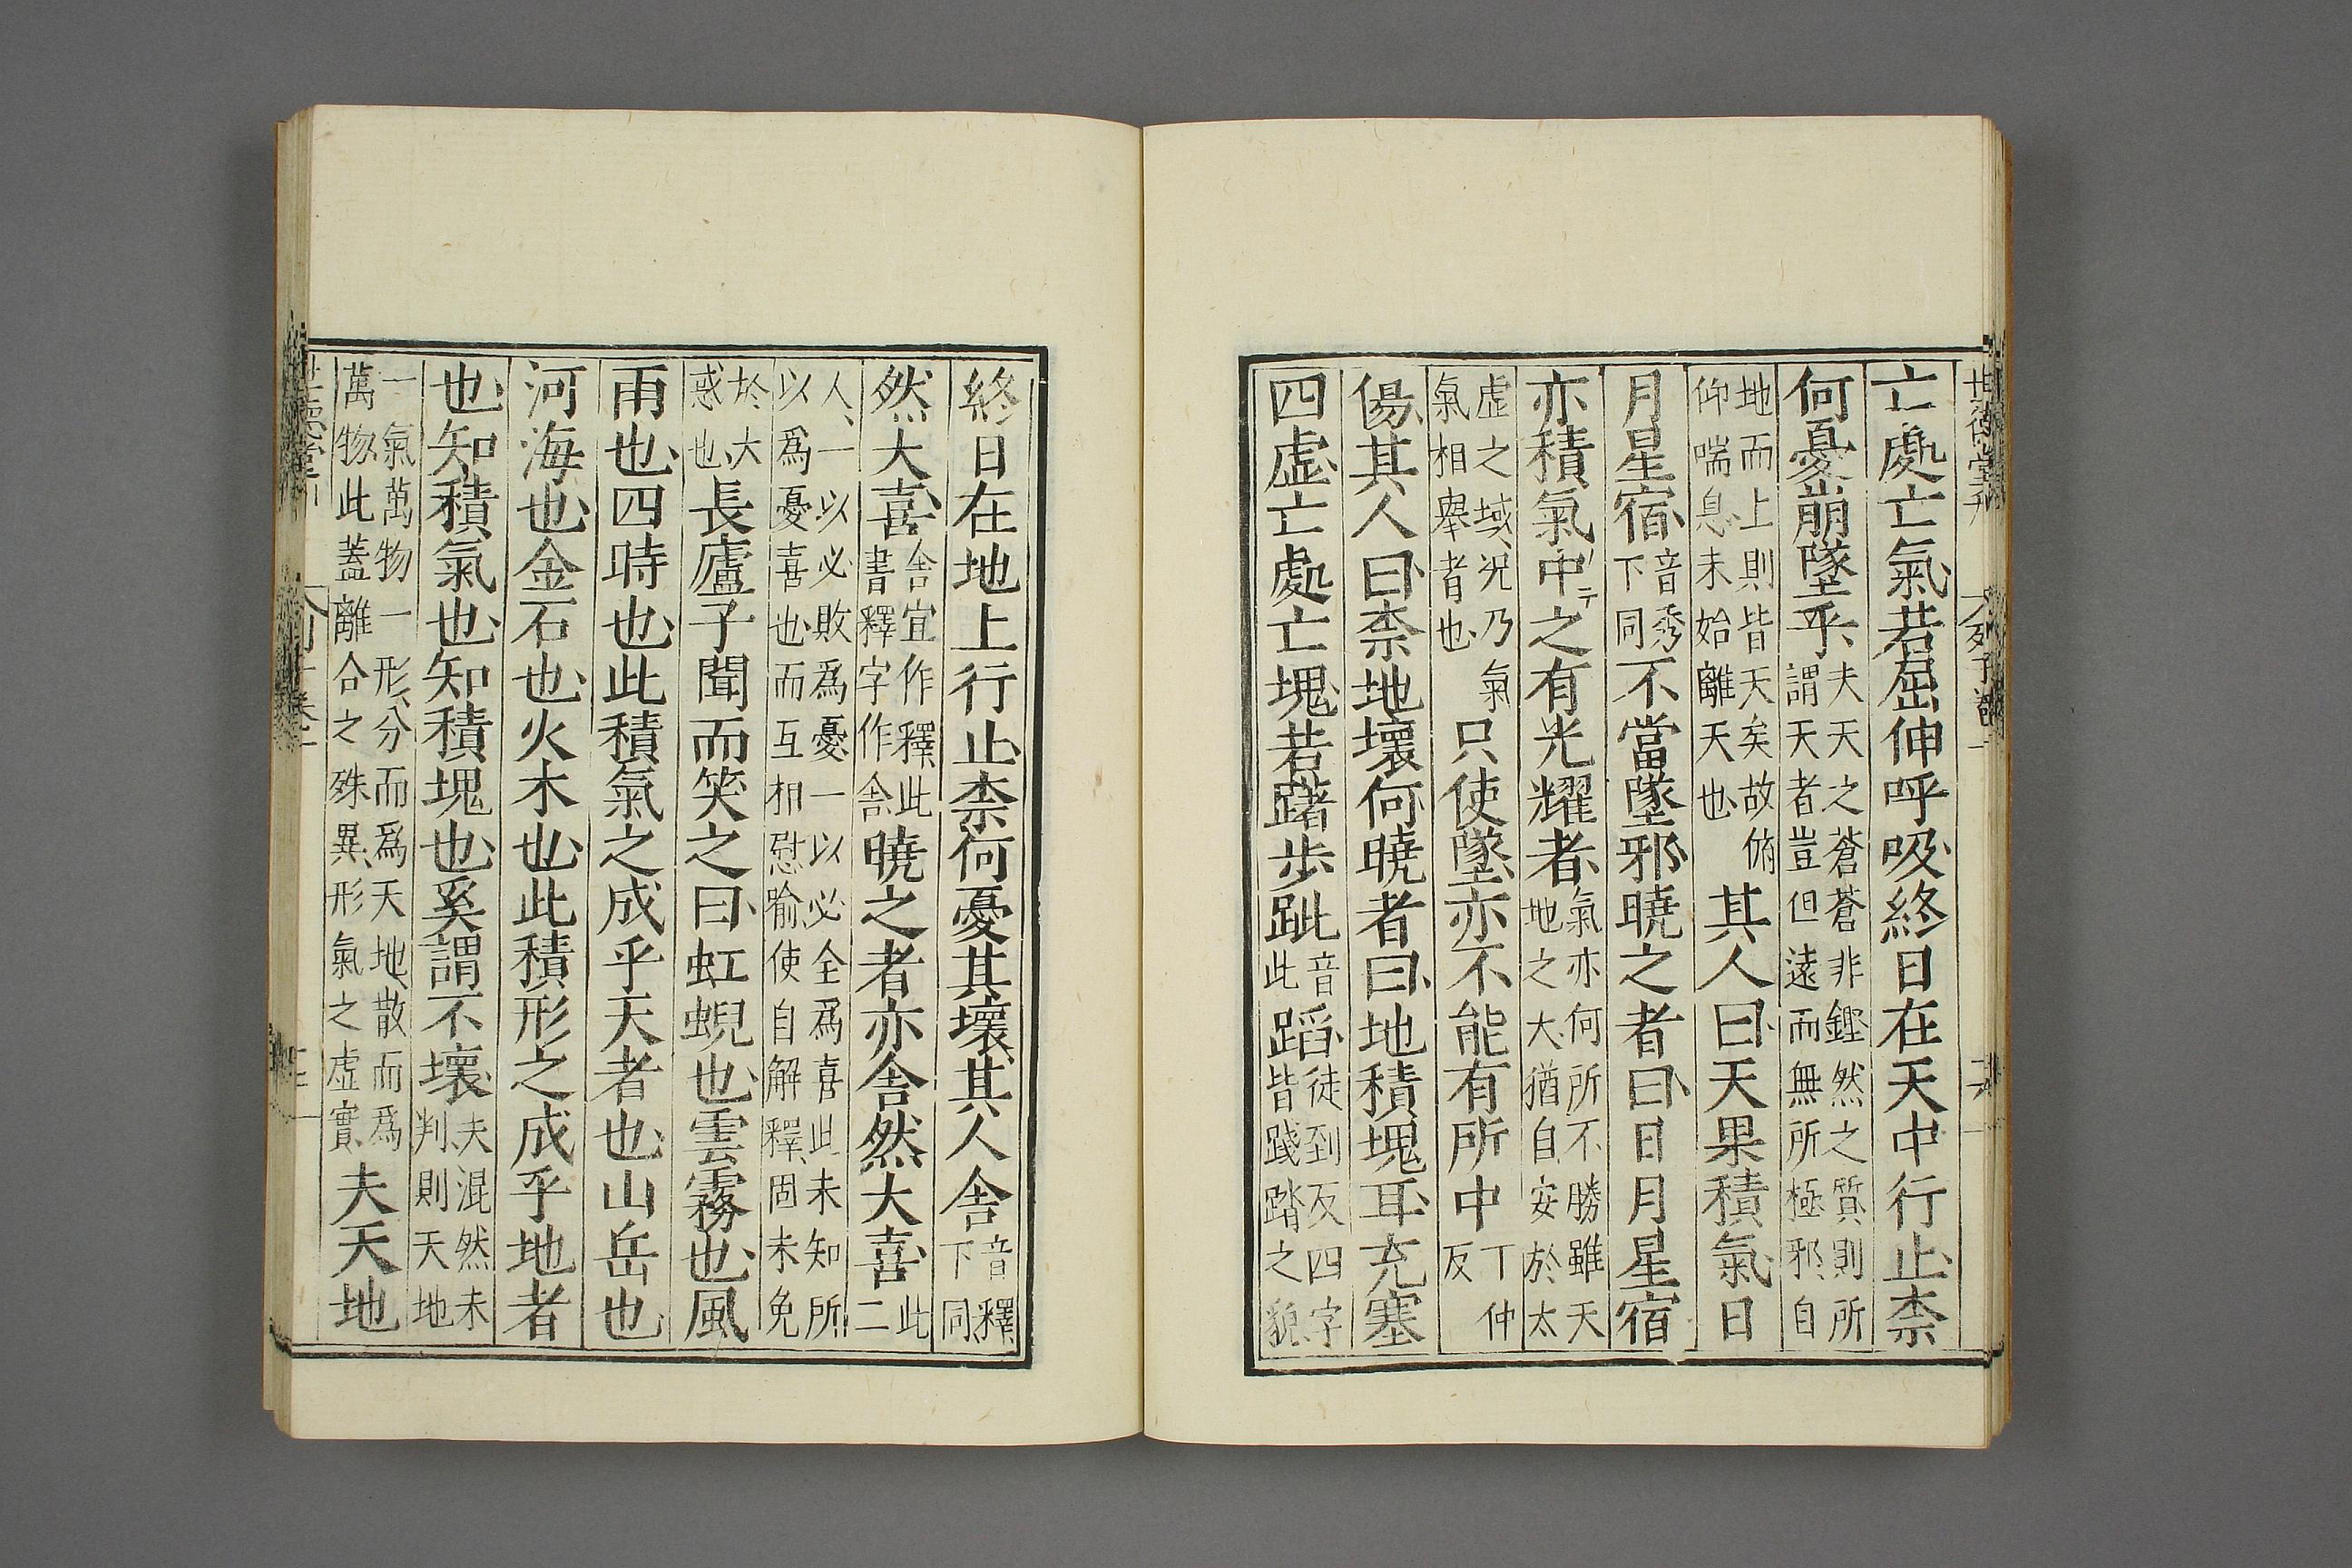 世德堂刊 列子卷一 十六
亡處亡氣若屈伸呼吸終日在天中行止柰
何憂崩墜乎夫天之蒼蒼非鏗然之質則所謂天者豈但遠而無所極邪自
地而上則皆天矣故俯仰喘息未始離天也其人曰天果積氣日
月星宿音秀下同不當墜邪曉之者曰日月星宿
亦積氣中之有光耀者氣亦何所不勝雖天地之大猶自安於太
虛之域況乃氣氣相舉者也只使墜亦不能有所中丁仲反
傷其人曰柰地壞何曉者曰地積塊耳充塞
四虛亡處亡塊若躇步跐音此蹈徒到反四字皆踐踏之貌
終日在地上行止柰何憂其壞其人舍音釋下同
然大喜舍宜作釋此書釋字作舍曉之者亦舍然大喜此二
人一以必敗爲憂一以必全爲喜此未知所以爲憂喜也而互相慰喻使自解釋固未免
於大惑也長廬子聞而笑之曰虹蜺也雲霧也風
雨也四時也此積氣之成乎天者也山岳也
河海也金石也火木也此積形之成乎地者
也知積氣也知積塊也奚謂不壞夫混然未判則天地
一氣萬物一形分而爲天地散而爲萬物此蓋離合之殊異形氣之虛實夫天地